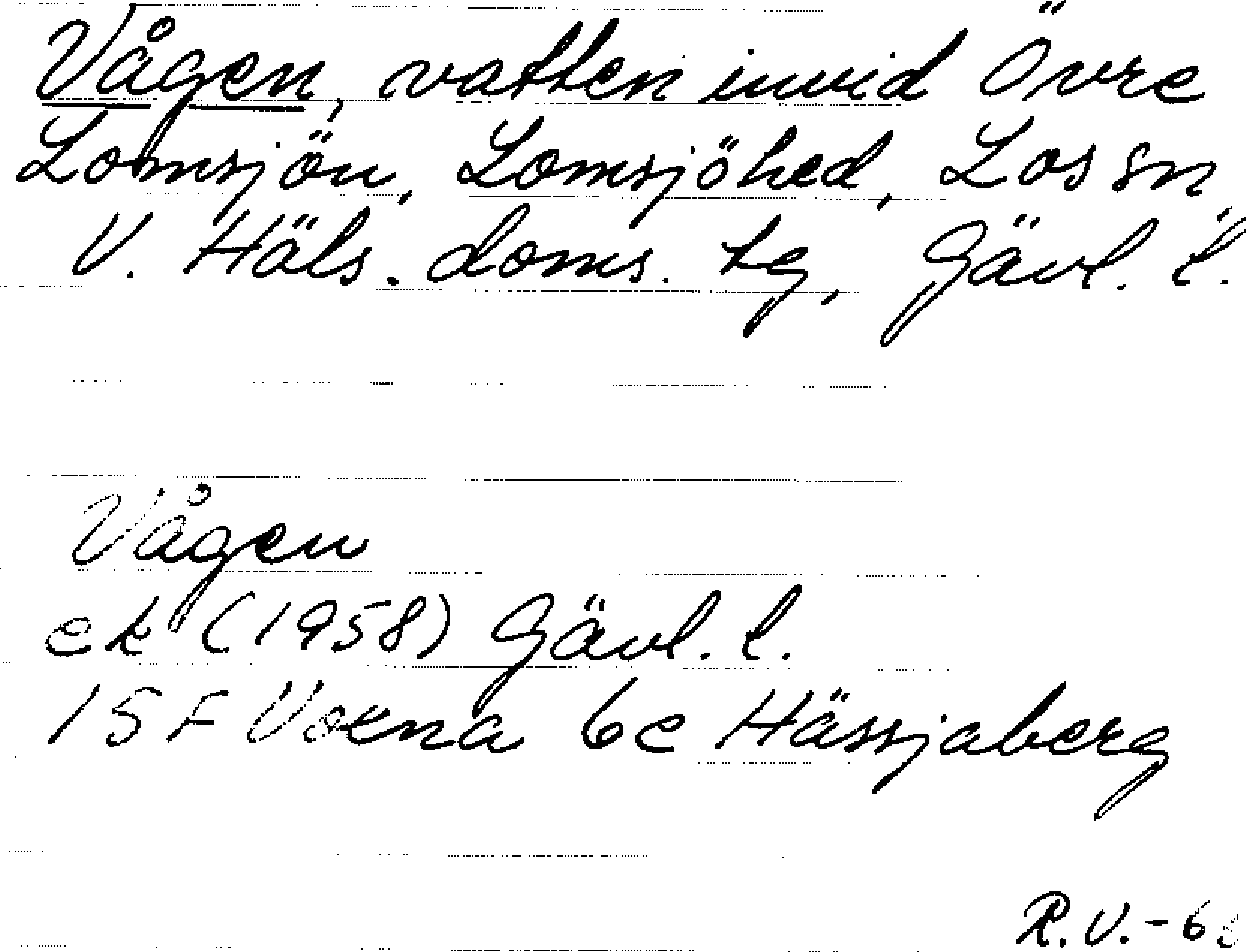 Vågen, vatten invid Övre
Lomsjön, Lomsjöhed, Los sn
V. Häls. doms. tg, Gävl. l.
Vågen
ek (1958) Gävl. l.
15 F Voxna 6e Hässjaberg
R.V.-6